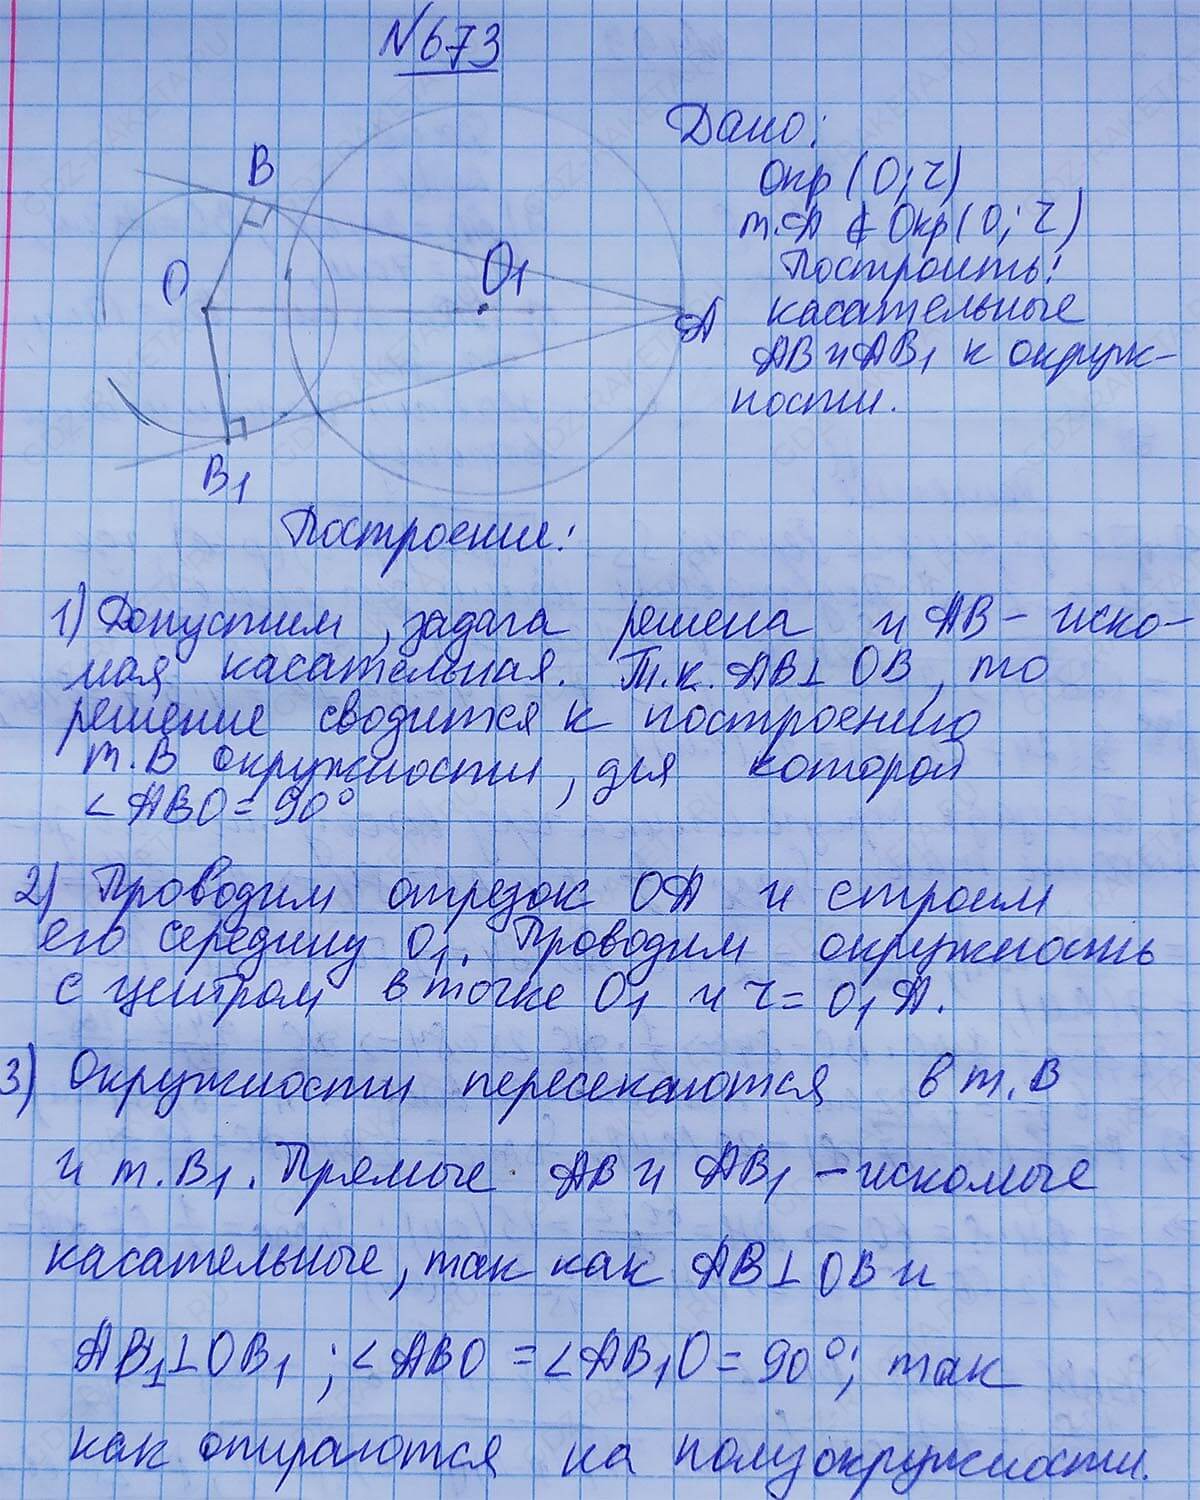 №673
Дано:
Окр (O; r)
т. A ∉ Окр (O; r)
Построить:
касательные
AB и AB₁ к окруж-
ности.
B
O
O₁
A
B₁
Построение:
1) Допустим, задача решена и AB - иско-
мая касательная. Т.к. AB⊥OB, то
решение сводится к построению
т. B окружности, для которой
∠ABO = 90°
2) Проводим отрезок OA и строим
его середину O₁. Проводим окружность
с центром в точке O₁ и r = O₁A.
3) Окружности пересекаются в т. B
и т. B₁. Прямые AB и AB₁ - искомые
касательные, так как AB⊥OB и
AB₁⊥OB₁; ∠ABO = ∠AB₁O = 90°; так
как опираются на полуокружности.